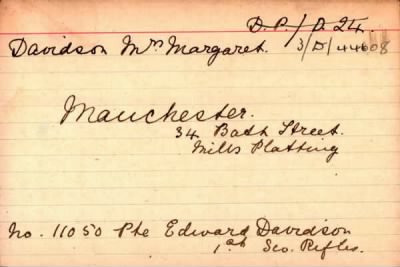 D.P./D.24.
Davidson Mrs Margaret. 3/D/44608
Manchester.
34 Bath Street.
Mills Platting
No. 11050 Pte Edward Davidson
1st Sco. Rifles.